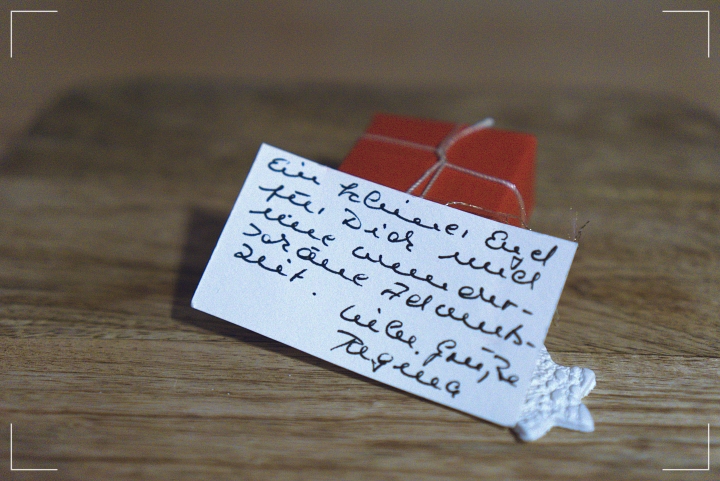 Ein kleiner Engel
für Dich und
eine wunder-
schöne Advents-
zeit.
Liebe Grüße
Regina